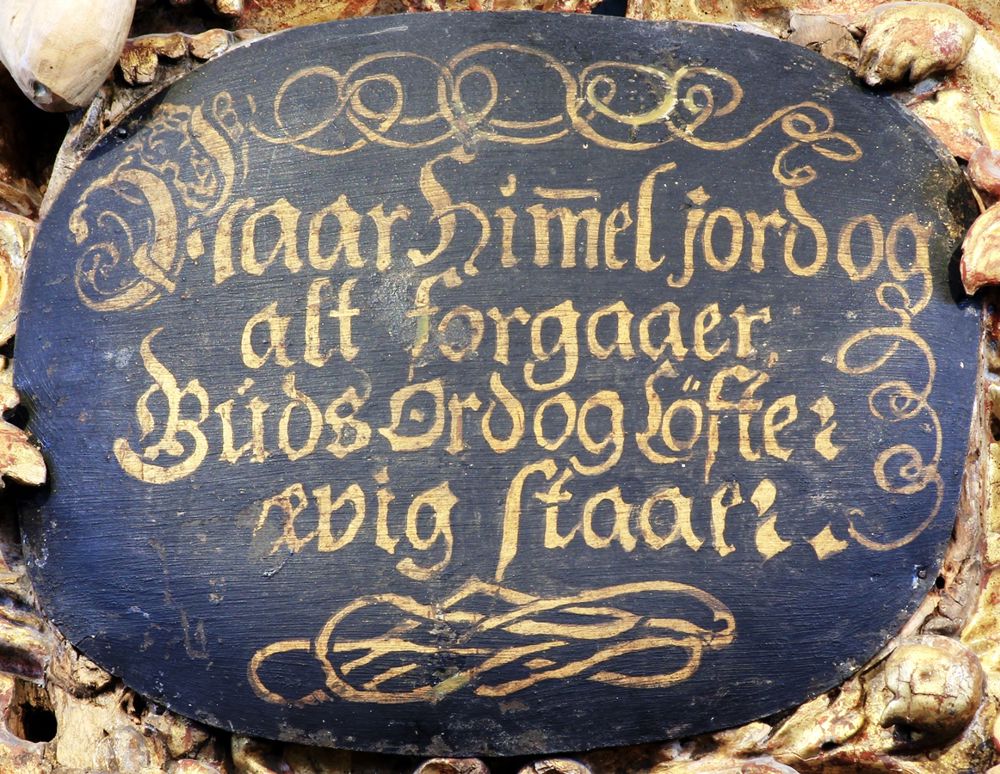 Naar Him̅el jord og
alt forgaaer,
Gúds Ord og Löfter
ævig staar.